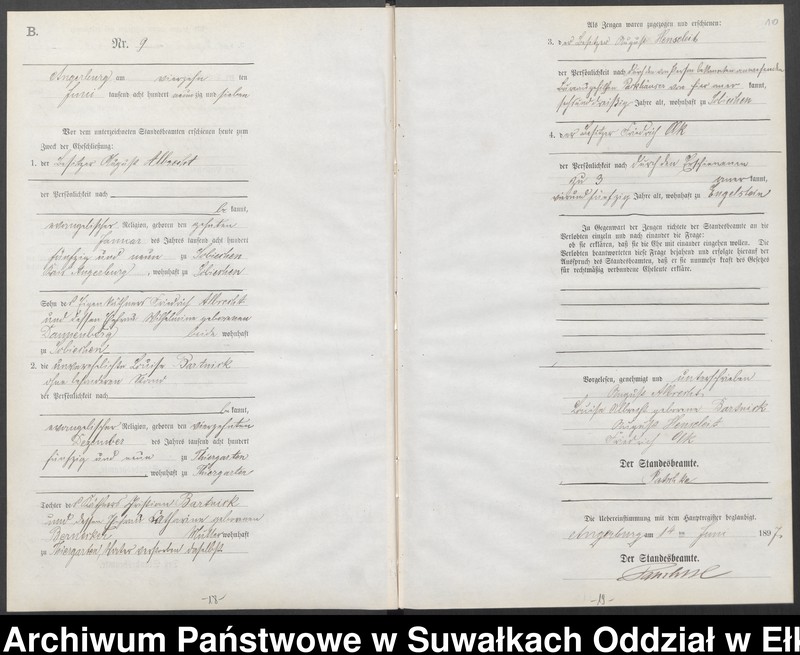 B.
Nr. 9
Angerburg am vierzehn ten
Juni tausend acht hundert neunzig und sieben
Vor dem unterzeichneten Standesbeamten erschienen heute zum
Zweck der Eheschließung:
1. der Besitzer August Albrecht
der Persönlichkeit nach
be kannt,
evangelischer Religion, geboren den zehnten
Januar des Jahres tausend acht hundert
fünfzig und neun zu Sobiechen
Kreis Angerburg, wohnhaft zu Sobiechen
Sohn des Eigenkäthners Friedrich Albrecht
und dessen Ehefrau Wilhelmine geborenen
Dannenberg beide wohnhaft
zu Sobiechen
2. die unverehelichte Louise Bartnick
ohne besonderen Stand
der Persönlichkeit nach
be kannt,
evangelischer Religion, geboren den vierzehnten
Dezember des Jahres tausend acht hundert
fünfzig und neun zu Thiergarten
, wohnhaft zu Thiergarten
Tochter des Käthners Bartnick
und dessen Ehefrau Catharine geborenen
Mutter wohnhaft
zu Thiergarten, Vater verstorben daselbst
-18-
10
Als Zeugen waren zugezogen und erschienen:
3. der Besitzer August Henseleit
der Persönlichkeit nach durch den von Person bekannten anwesenden
von hier aner kannt,
sechsunddreißig Jahre alt, wohnhaft zu Sobiechen
4. der Besitzer Friedrich Ak
der Persönlichkeit nach durch den Erschienenen
zu 3 aner kannt,
vierundfünfzig Jahre alt, wohnhaft zu Engelstein
In Gegenwart der Zeugen richtete der Standesbeamte an die
Verlobten einzeln und nach einander die Frage:
ob sie erklären, daß sie die Ehe mit einander eingehen wollen. Die
Verlobten beantworteten diese Frage bejahend und erfolgte hierauf der
Ausspruch des Standesbeamten, daß er sie nunmehr kraft des Gesetzes
für rechtmäßig verbundene Eheleute erkläre.
Vorgelesen, genehmigt und unterschrieben
August Albrecht.
Louise Albrecht geborene Bartnick
August Henseleit
Friedrich Ak
Der Standesbeamte.
Die Uebereinstimmung mit dem Hauptregister beglaubigt.
Angerburg am 14 ten Juni 1897.
Der Standesbeamte.
-19-
Archiwum Państwowe w Suwałkach Oddział w Ełk